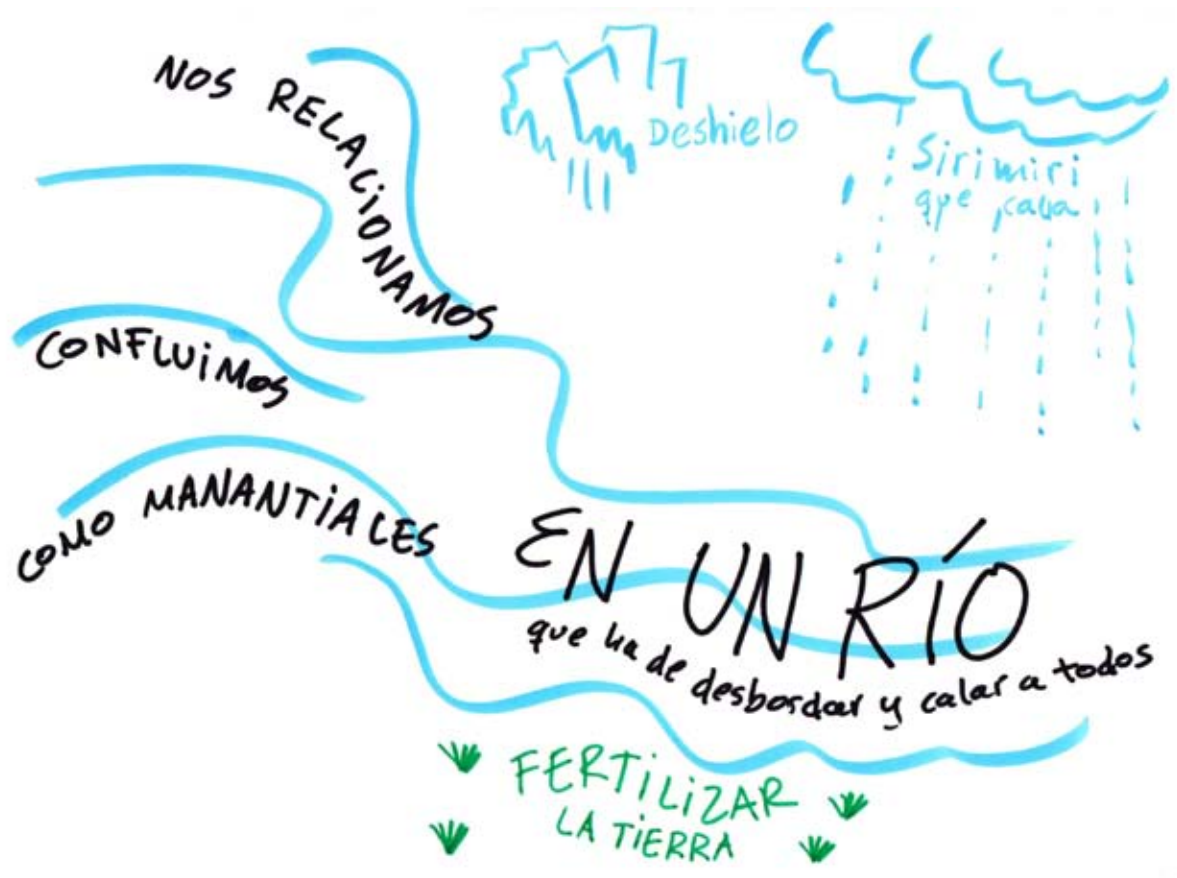 NOS RELACIONAMOS
Deshielo
Sirimiri
que cala
CONFLUiMOS
COMO MANANTiALES
EN UN RÍO
que ha de desbordar y calar a todos
FERTiLiZAR
LA TiERRA